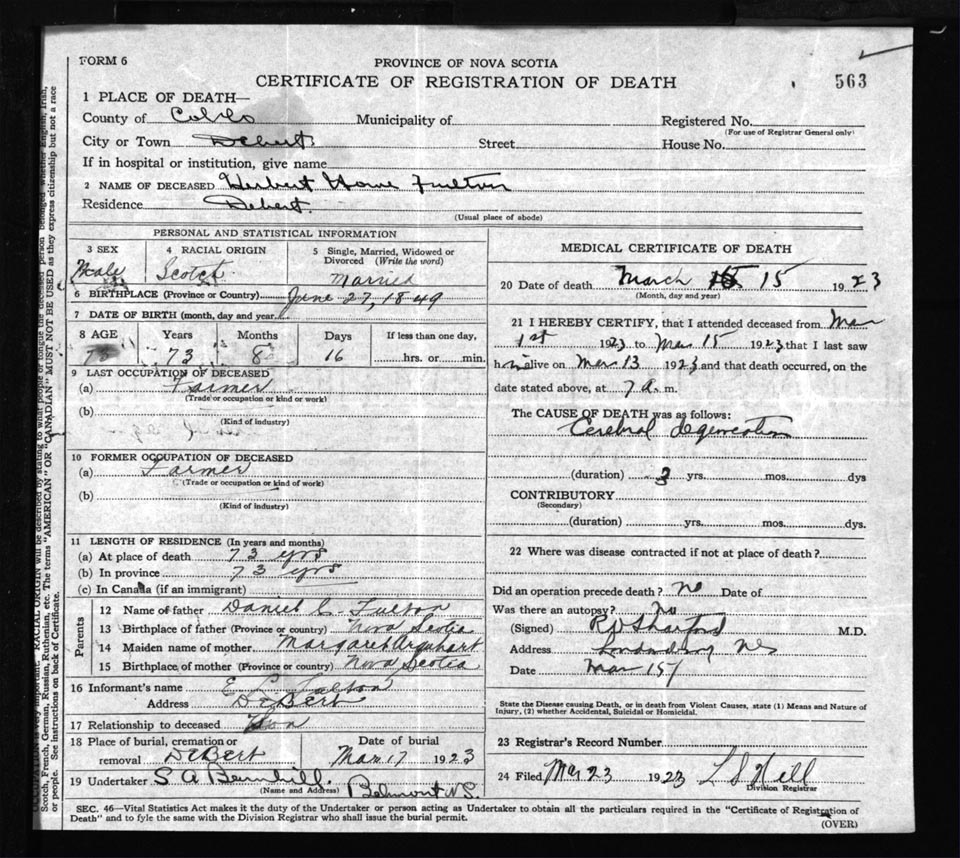 FORM 6
PROVINCE OF NOVA SCOTIA
CERTIFICATE OF REGISTRATION OF DEATH
563
1 PLACE OF DEATH—
County of Municipality of Registered No.
(For use of Registrar General only)
City or Town Debert Street House No.
If in hospital or institution, give name
2 NAME OF DECEASED Herbert Howe Fulton
Residence Debert.
(Usual place of abode)
PERSONAL AND STATISTICAL INFORMATION
3 SEX 4 RACIAL ORIGIN 5 Single, Married, Widowed or Divorced (Write the word)
Male Scotch Married
6 BIRTHPLACE (Province or Country) June 27, 1849
7 DATE OF BIRTH (month, day and year
8 AGE Years Months Days If less than one day,
73 8 16 hrs. or min.
9 LAST OCCUPATION OF DECEASED
(a) Farmer
(Trade or occupation or kind or work)
(b)
(Kind of industry)
10 FORMER OCCUPATION OF DECEASED
(a) Farmer
(Trade or occupation or kind of work)
(b)
(Kind of industry)
11 LENGTH OF RESIDENCE (In years and months)
(a) At place of death 73 yrs
(b) In province 73 yrs
(c) In Canada (if an immigrant)
Parents
12 Name of father Daniel C. Fulton
13 Birthplace of father (Province or country) Nova Scotia
14 Maiden name of mother Margaret Urquhart
15 Birthplace of mother (Province or country) Nova Scotia
16 Informant's name E Fulton
Address DeBert
17 Relationship to deceased Son
18 Place of burial, cremation or removal DeBert Date of burial Mar 17 1923
19 Undertaker S A
(Name and Address) Belmont N.S.
MEDICAL CERTIFICATE OF DEATH
20 Date of death March 15 1923
(Month, day and year)
21 I HEREBY CERTIFY, that I attended deceased from Mar
1st 1923 to Mar 15 1923 that I last saw
him alive on Mar 13 1923 and that death occurred, on the
date stated above, at 7 a. m.
The CAUSE OF DEATH was as follows:
Cerebral degeneration
(duration) yrs. mos. dys
CONTRIBUTORY
(Secondary)
(duration) yrs. mos. dys.
22 Where was disease contracted if not at place of death?
Did an operation precede death? no Date of
Was there an autopsy? no
(Signed) M.D.
Address NS
Date Mar 15/
State the Disease causing Death, or in death from Violent Causes, state (1) Means and Nature of
Injury, (2) whether Accidental, Suicidal or Homicidal.
23 Registrar's Record Number
24 Filed Mar 23 1923 L S Hill
Division Registrar
SEC. 46—Vital Statistics Act makes it the duty of the Undertaker or person acting as Undertaker to obtain all the particulars required in the "Certificate of Registration of
Death" and to fyle the same with the Division Registrar who shall issue the burial permit.
(OVER)
RACIAL ORIGIN will be described by stating to what people or tongue the deceased person belonged whether English, Irish,
Scotch, French, German, Russian, Ruthenian, etc. The terms "AMERICAN" OR "CANADIAN" MUST NOT BE USED as they express citizenship but not a race
or people. See instructions on back of Certificate.